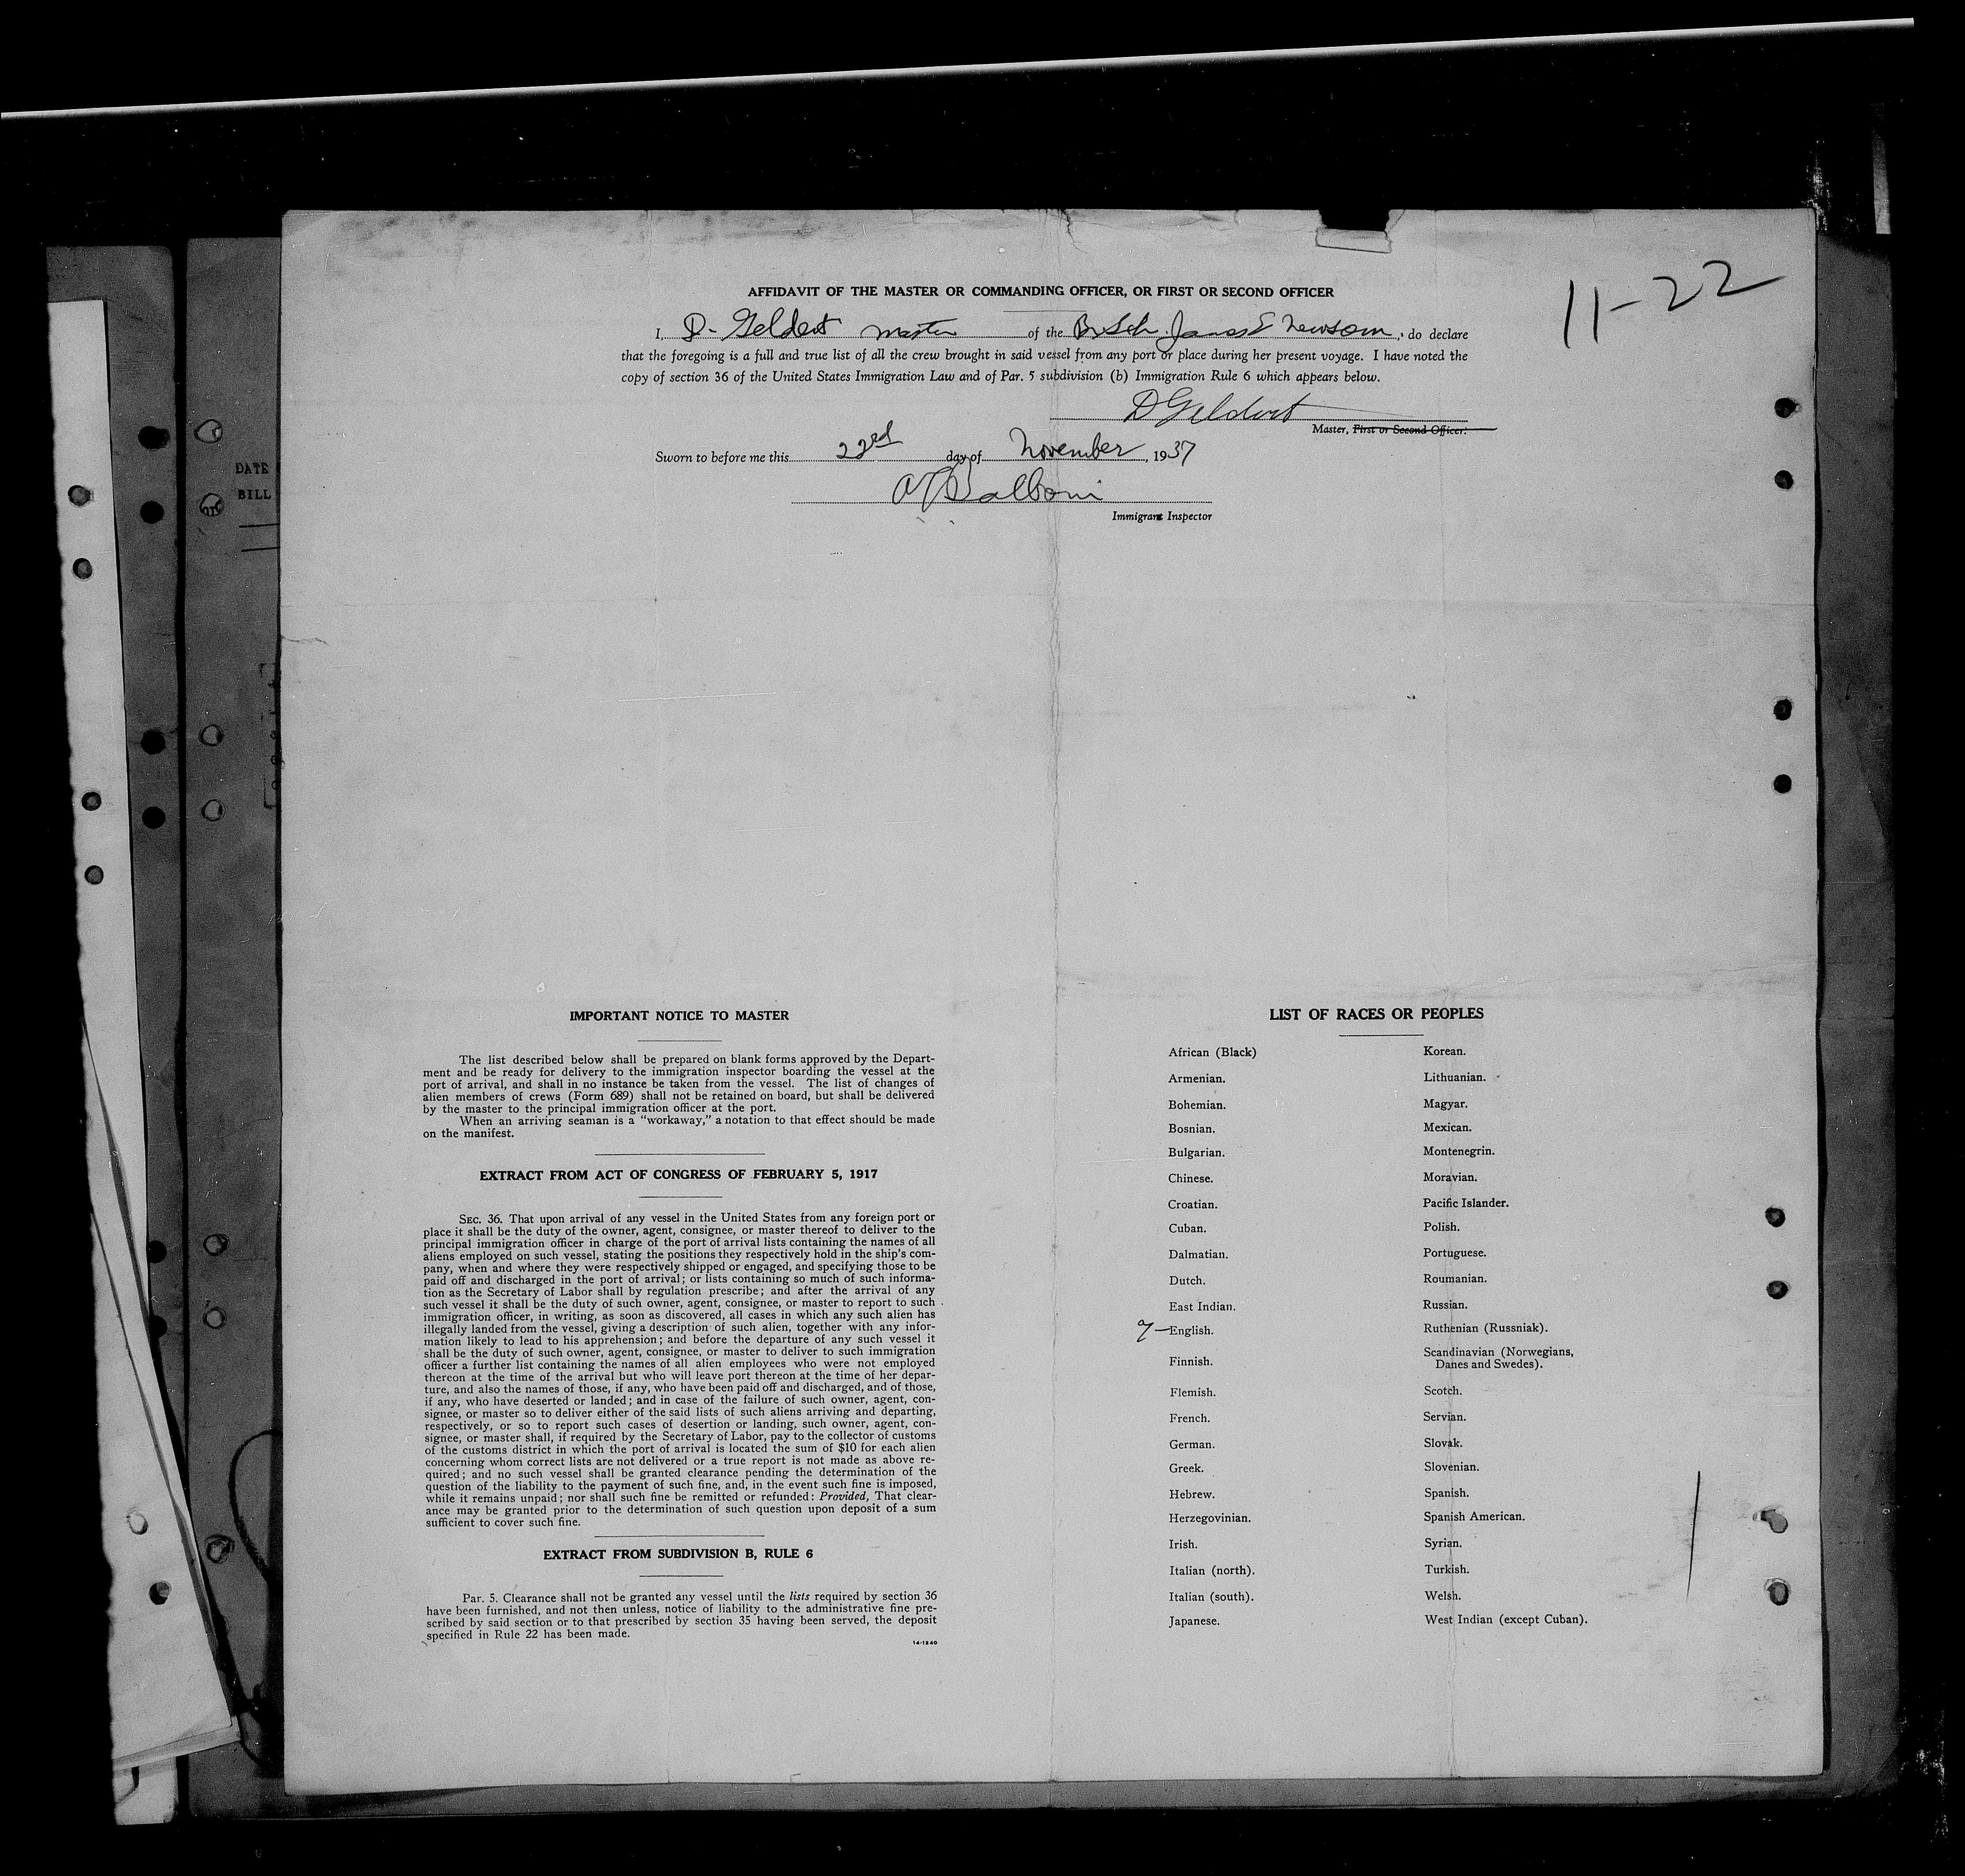 11-22
AFFIDAVIT OF THE MASTER OR COMMANDING OFFICER, OR FIRST OR SECOND OFFICER
I, D. Geldert master of the Br Sch. James E Newsom, do declare
that the foregoing is a full and true list of all the crew brought in said vessel from any port or place during her present voyage. I have noted the
copy of section 36 of the United States Immigration Law and of Par. 5 subdivision (b) Immigration Rule 6 which appears below.
D Geldert
Master, First or Second Officer.
Sworn to before me this 22rd day of November, 1937
Balboni
Immigrant Inspector
DATE
BILL
IMPORTANT NOTICE TO MASTER
The list described below shall be prepared on blank forms approved by the Depart-
ment and be ready for delivery to the immigration inspector boarding the vessel at the
port of arrival, and shall in no instance be taken from the vessel. The list of changes of
alien members of crews (Form 689) shall not be retained on board, but shall be delivered
by the master to the principal immigration officer at the port.
When an arriving seaman is a "workaway," a notation to that effect should be made
on the manifest.
EXTRACT FROM ACT OF CONGRESS OF FEBRUARY 5, 1917
SEC. 36. That upon arrival of any vessel in the United States from any foreign port or
place it shall be the duty of the owner, agent, consignee, or master thereof to deliver to the
principal immigration officer in charge of the port of arrival lists containing the names of all
aliens employed on such vessel, stating the positions they respectively hold in the ship's com-
pany, when and where they were respectively shipped or engaged, and specifying those to be
paid off and discharged in the port of arrival; or lists containing so much of such informa-
tion as the Secretary of Labor shall by regulation prescribe; and after the arrival of any
such vessel it shall be the duty of such owner, agent, consignee, or master to report to such
immigration officer, in writing, as soon as discovered, all cases in which any such alien has
illegally landed from the vessel, giving a description of such alien, together with any infor-
mation likely to lead to his apprehension; and before the departure of any such vessel it
shall be the duty of such owner, agent, consignee, or master to deliver to such immigration
officer a further list containing the names of all alien employees who were not employed
thereon at the time of the arrival but who will leave port thereon at the time of her depar-
ture, and also the names of those, if any, who have been paid off and discharged, and of those,
if any, who have deserted or landed; and in case of the failure of such owner, agent, con-
signee, or master so to deliver either of the said lists of such aliens arriving and departing,
respectively, or so to report such cases of desertion or landing, such owner, agent, con-
signee, or master shall, if required by the Secretary of Labor, pay to the collector of customs
of the customs district in which the port of arrival is located the sum of $10 for each alien
concerning whom correct lists are not delivered or a true report is not made as above re-
quired; and no such vessel shall be granted clearance pending the determination of the
question of the liability to the payment of such fine, and, in the event such fine is imposed,
while it remains unpaid; nor shall such fine be remitted or refunded: Provided, That clear-
ance may be granted prior to the determination of such question upon deposit of a sum
sufficient to cover such fine.
EXTRACT FROM SUBDIVISION B, RULE 6
Par. 5. Clearance shall not be granted any vessel until the lists required by section 36
have been furnished, and not then unless, notice of liability to the administrative fine pre-
scribed by said section or to that prescribed by section 35 having been served, the deposit
specified in Rule 22 has been made.
14-1240
LIST OF RACES OR PEOPLES
African (Black)
Armenian.
Bohemian.
Bosnian.
Bulgarian.
Chinese.
Croatian.
Cuban.
Dalmatian.
Dutch.
East Indian.
7-English.
Finnish.
Flemish.
French.
German.
Greek.
Hebrew.
Herzegovinian.
Irish.
Italian (north).
Italian (south).
Japanese.
Korean.
Lithuanian.
Magyar.
Mexican.
Montenegrin.
Moravian.
Pacific Islander.
Polish.
Portuguese.
Roumanian.
Russian.
Ruthenian (Russniak).
Scandinavian (Norwegians,
Danes and Swedes).
Scotch.
Servian.
Slovak.
Slovenian.
Spanish.
Spanish American.
Syrian.
Turkish.
Welsh.
West Indian (except Cuban).